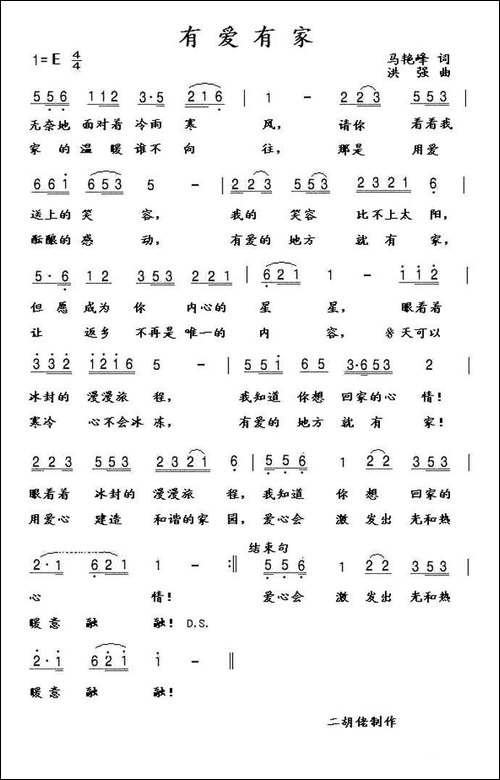 有爱有家
1=E 4/4 马艳峰 词
洪强 曲
5 5 6 1 1 2 3·5 2 1 6 | 1 - 2 2 3 5 5 3 |
无奈地 面对着 冷雨 寒 风， 请你 看着我
家的温暖谁不向 往， 那是 用爱
6 6 1 6 5 3 5 - | 2 2 3 5 5 3 2 3 2 1 6 |
送上的笑 容， 我的 笑容 比不上太阳，
酝酿的感 动， 有爱的 地方 就有家，
5·6 1 2 3 5 3 2 2 1 | 6 2 1 1 - 1 1 2 |
但愿 成为你 内心的 星 星， 眼看着
让 返乡 不再是 唯一的 内 容， 冬天可以
3 3 2 1 2 1 6 5 - | 5 5 1 6 5 3·6 5 3 2 |
冰封的 漫漫旅 程， 我知道 你想 回家的心 情！
寒冷 心不会冰 冻， 有爱的 地方 就有 家！
2 2 3 5 5 3 2 3 2 1 6 | 5 5 6 1 2 2 3 5 3 |
眼看着 冰封的 漫漫旅 程，我知道 你 想 回家的
用爱心 建造 和谐的家 园，爱心会 激 发出 光和热
结束句
2·1 6 2 1 1 - :‖ 5 5 6 1 2 2 3 5 3 |
心 情！ 爱心会 激 发出 光和热
暖意 融 融！D.S.
2·1 6 2 1 1 - ‖
暖意 融 融！
二胡佬制作